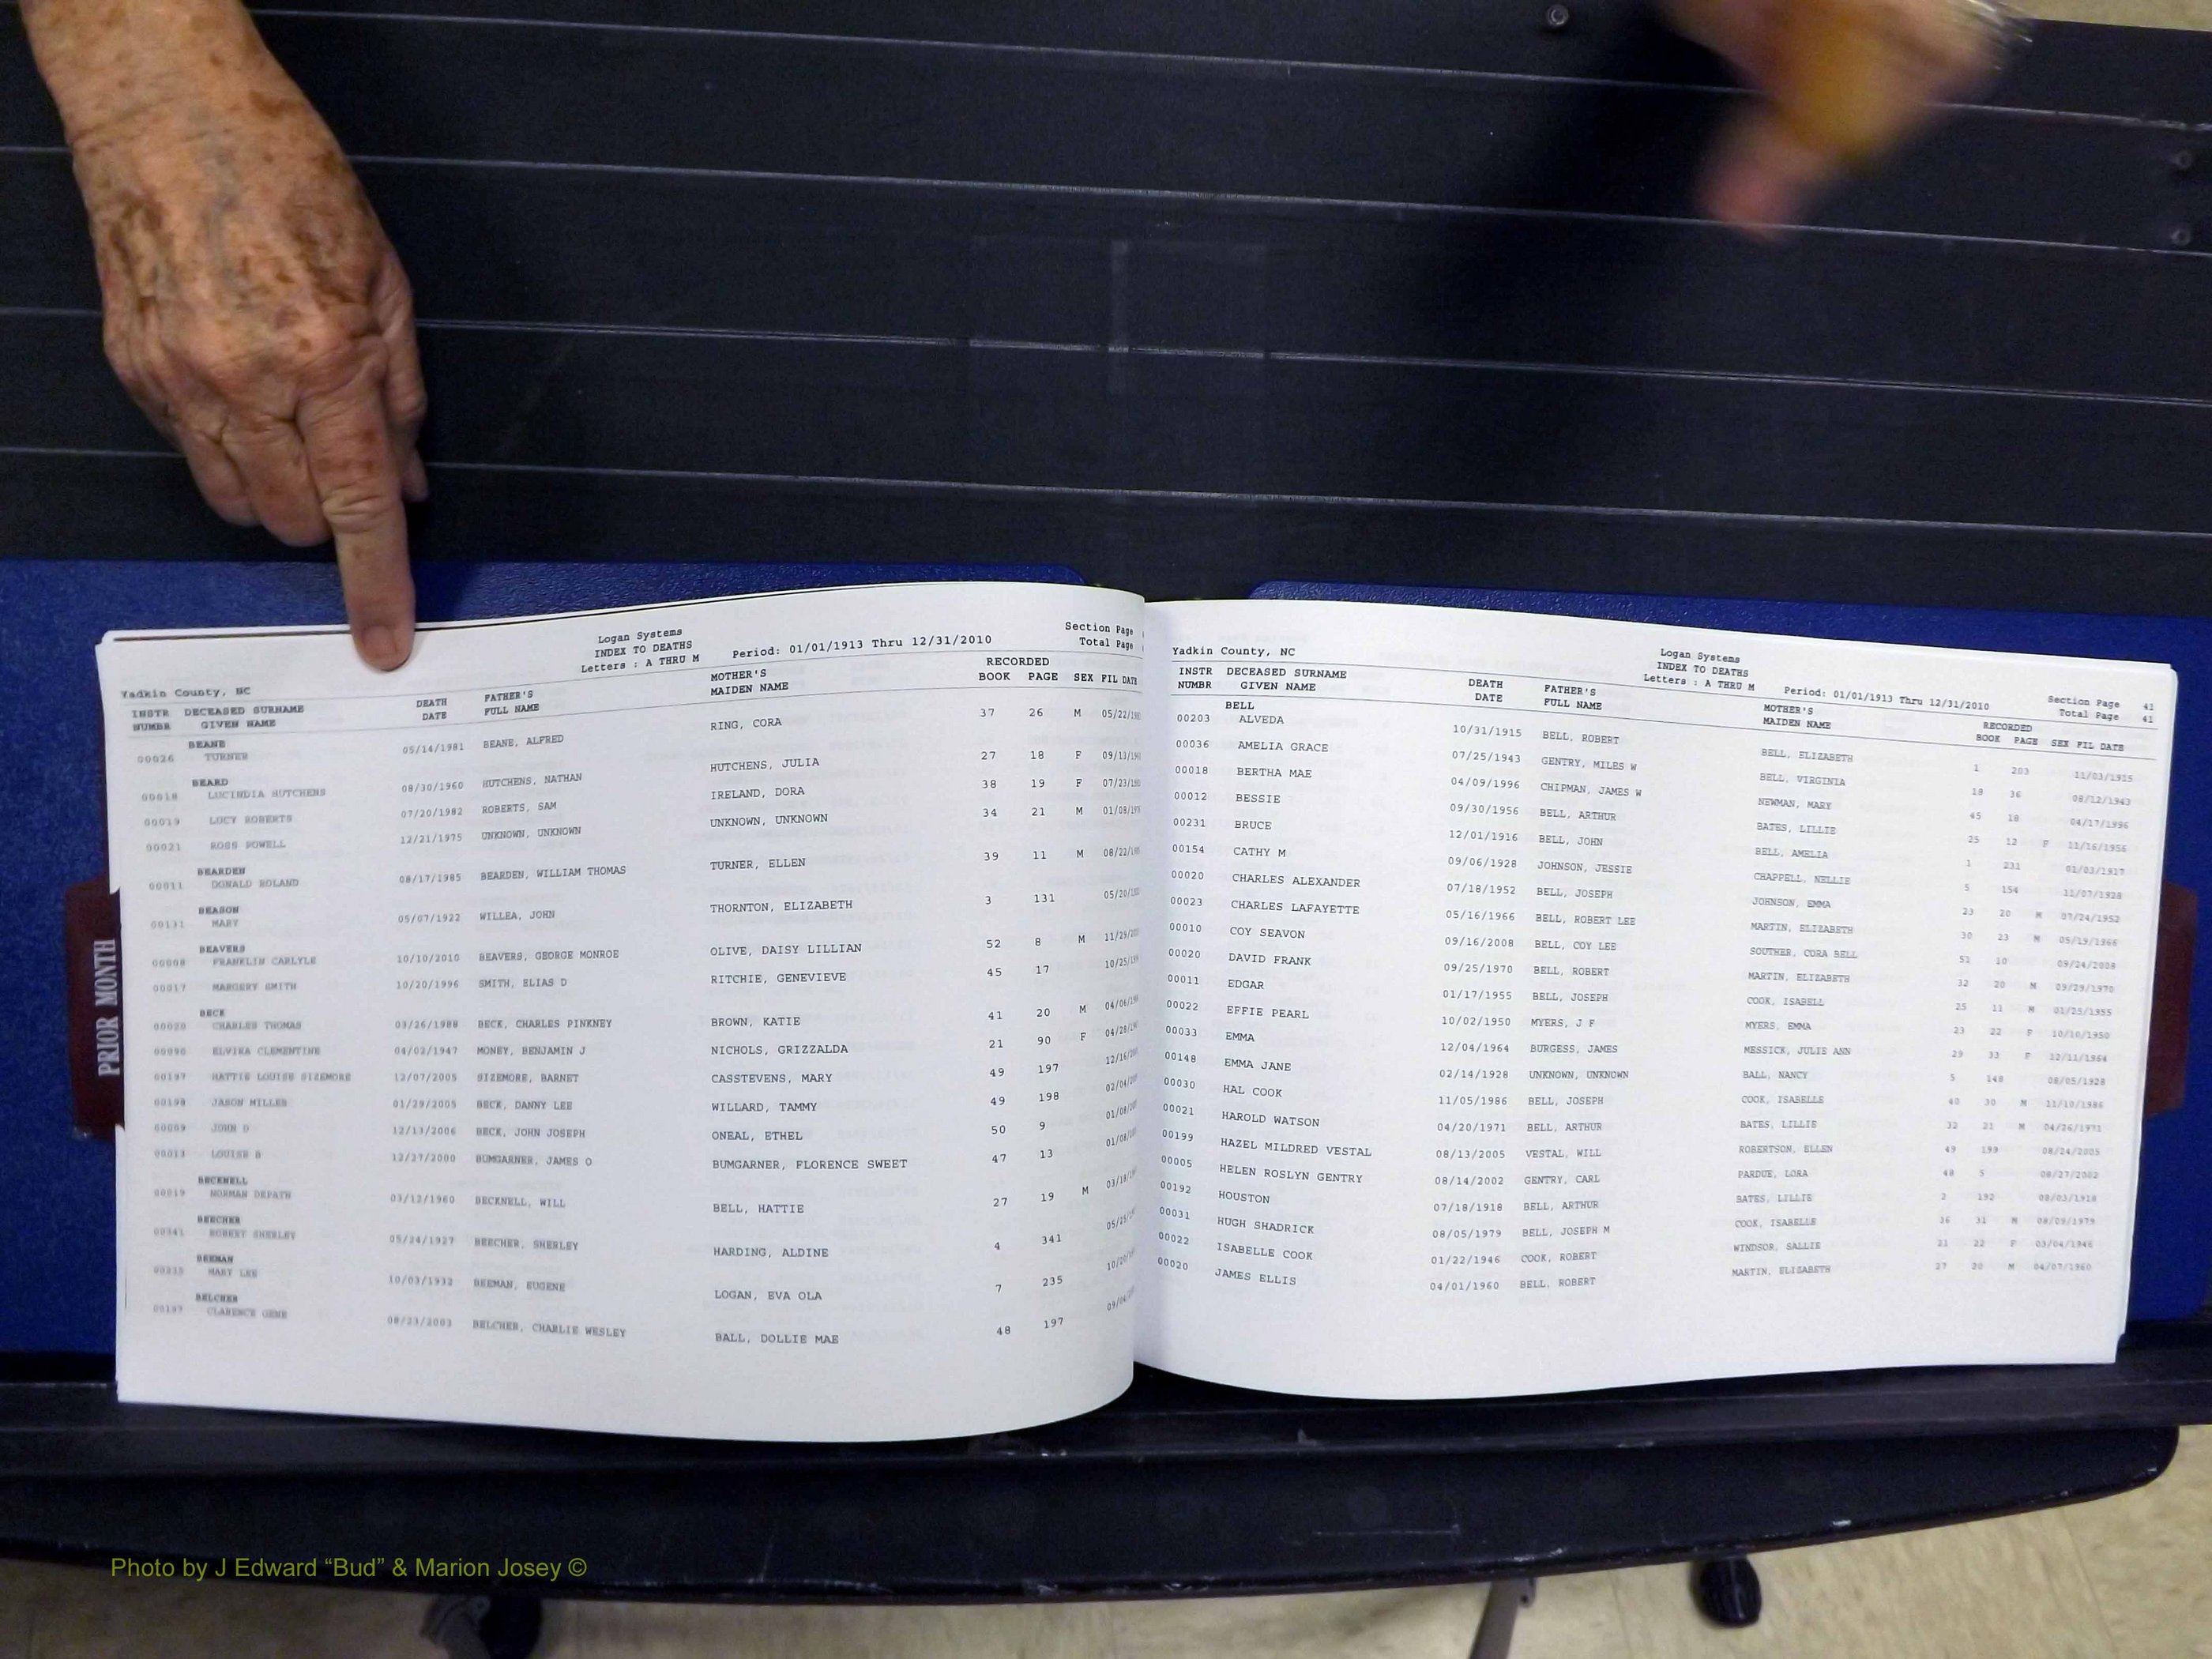 Logan Systems
INDEX TO DEATHS
Letters : A THRU M Period: 01/01/1913 Thru 12/31/2010 Section Page
Total Page
Yadkin County, NC
INSTR DECEASED SURNAME DEATH FATHER'S MOTHER'S RECORDED
NUMBR GIVEN NAME DATE FULL NAME MAIDEN NAME BOOK PAGE SEX FIL DATE
BEANE
00026 TURNER 05/14/1981 BEANE, ALFRED RING, CORA 37 26 M 05/22/
BEARD
00018 LUCINDIA HUTCHENS 08/30/1960 HUTCHENS, NATHAN HUTCHENS, JULIA 27 18 F 09/13/
00019 LUCY ROBERTS 07/20/1982 ROBERTS, SAM IRELAND, DORA 38 19 F 07/23/
00021 ROSS POWELL 12/21/1975 UNKNOWN, UNKNOWN UNKNOWN, UNKNOWN 34 21 M 01/08/
BEARDEN
00011 DONALD ROLAND 08/17/1985 BEARDEN, WILLIAM THOMAS TURNER, ELLEN 39 11 M 08/22/
BEASON
00131 MARY 05/07/1922 WILLEA, JOHN THORNTON, ELIZABETH 3 131 05/20/
BEAVERS
00008 FRANKLIN CARLYLE 10/10/2010 BEAVERS, GEORGE MONROE OLIVE, DAISY LILLIAN 52 8 M 11/29/
00017 MARGERY SMITH 10/20/1996 SMITH, ELIAS D RITCHIE, GENEVIEVE 45 17 10/25/
BECK
00020 CHARLES THOMAS 03/26/1988 BECK, CHARLES PINKNEY BROWN, KATIE 41 20 M 04/06/
00090 ELVIRA CLEMENTINE 04/02/1947 MONEY, BENJAMIN J NICHOLS, GRIZZALDA 21 90 F 04/28/
00197 HATTIE LOUISE SIZEMORE 12/07/2005 SIZEMORE, BARNET CASSTEVENS, MARY 49 197 12/16/
00198 JASON MILLER 01/29/2005 BECK, DANNY LEE WILLARD, TAMMY 49 198 02/04/
00009 JOHN D 12/13/2006 BECK, JOHN JOSEPH ONEAL, ETHEL 50 9 01/08/
00013 LOUISE B 12/27/2000 BUMGARNER, JAMES O BUMGARNER, FLORENCE SWEET 47 13 01/08/
BECKNELL
00019 NORMAN DEPATH 03/12/1960 BECKNELL, WILL BELL, HATTIE 27 19 M 03/18/
BEECHER
00341 ROBERT SHERLEY 05/24/1927 BEECHER, SHERLEY HARDING, ALDINE 4 341 05/25/
BEEMAN
00235 MARY LEE 10/03/1932 BEEMAN, EUGENE LOGAN, EVA OLA 7 235 10/20/
BELCHER
00197 CLARENCE GENE 08/23/2003 BELCHER, CHARLIE WESLEY BALL, DOLLIE MAE 48 197 09/04/
PRIOR MONTH
Logan Systems
INDEX TO DEATHS
Yadkin County, NC Letters : A THRU M Period: 01/01/1913 Thru 12/31/2010 Section Page 41
Total Page 41
INSTR DECEASED SURNAME DEATH FATHER'S MOTHER'S RECORDED
NUMBR GIVEN NAME DATE FULL NAME MAIDEN NAME BOOK PAGE SEX FIL DATE
BELL
00203 ALVEDA 10/31/1915 BELL, ROBERT BELL, ELIZABETH 1 203 11/03/1915
00036 AMELIA GRACE 07/25/1943 GENTRY, MILES W BELL, VIRGINIA 18 36 08/12/1943
00018 BERTHA MAE 04/09/1996 CHIPMAN, JAMES W NEWMAN, MARY 45 18 04/17/1996
00012 BESSIE 09/30/1956 BELL, ARTHUR BATES, LILLIE 25 12 F 11/16/1956
00231 BRUCE 12/01/1916 BELL, JOHN BELL, AMELIA 1 231 01/03/1917
00154 CATHY M 09/06/1928 JOHNSON, JESSIE CHAPPELL, NELLIE 5 154 11/07/1928
00020 CHARLES ALEXANDER 07/18/1952 BELL, JOSEPH JOHNSON, EMMA 23 20 M 07/24/1952
00023 CHARLES LAFAYETTE 05/16/1966 BELL, ROBERT LEE MARTIN, ELIZABETH 30 23 M 05/19/1966
00010 COY SEAVON 09/16/2008 BELL, COY LEE SOUTHER, CORA BELL 51 10 09/24/2008
00020 DAVID FRANK 09/25/1970 BELL, ROBERT MARTIN, ELIZABETH 32 20 M 09/29/1970
00011 EDGAR 01/17/1955 BELL, JOSEPH COOK, ISABELL 25 11 M 01/25/1955
00022 EFFIE PEARL 10/02/1950 MYERS, J F MYERS, EMMA 23 22 F 10/10/1950
00033 EMMA 12/04/1964 BURGESS, JAMES MESSICK, JULIE ANN 29 33 F 12/11/1964
00148 EMMA JANE 02/14/1928 UNKNOWN, UNKNOWN BALL, NANCY 5 148 08/05/1928
00030 HAL COOK 11/05/1986 BELL, JOSEPH COOK, ISABELLE 40 30 M 11/10/1986
00021 HAROLD WATSON 04/20/1971 BELL, ARTHUR BATES, LILLIE 32 21 M 04/26/1971
00199 HAZEL MILDRED VESTAL 08/13/2005 VESTAL, WILL ROBERTSON, ELLEN 49 199 08/24/2005
00005 HELEN ROSLYN GENTRY 08/14/2002 GENTRY, CARL PARDUE, LORA 48 5 08/27/2002
00192 HOUSTON 07/18/1918 BELL, ARTHUR BATES, LILLIE 2 192 08/03/1918
00031 HUGH SHADRICK 08/05/1979 BELL, JOSEPH M COOK, ISABELLE 36 31 M 08/09/1979
00022 ISABELLE COOK 01/22/1946 COOK, ROBERT WINDSOR, SALLIE 21 22 F 03/04/1946
00020 JAMES ELLIS 04/01/1960 BELL, ROBERT MARTIN, ELIZABETH 27 20 M 04/07/1960
Photo by J Edward “Bud” & Marion Josey ©